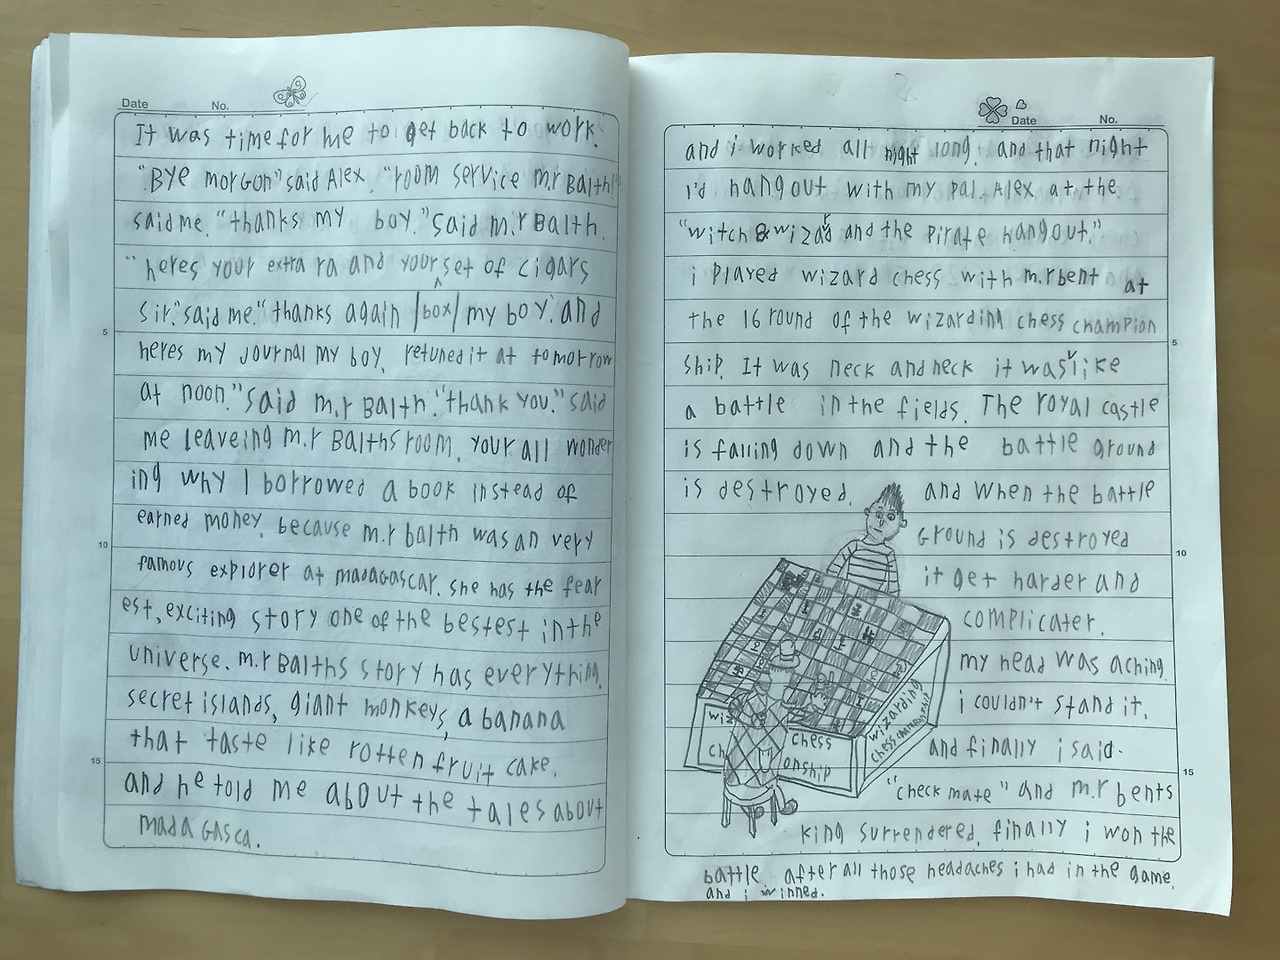 Date No.
It was time for me to get back to work.
"Bye morGon" said Alex. "room service m.r Balth!"
said me. "thanks my boy." said m.r Balth.
"heres your extra ra and your set of cigars
sir." said me. "thanks again box my boy. and
5
heres my journal my boy. retuned it at tomorrow
at noon." said m.r Balth. "thank you." said
me leaveing m.r Balths room. your all wonder
ing why I borrowed a book instead of
earned money. because m.r balth was an very
10
famous explorer at madagascar. she has the fear
est, exciting story one of the bestest in the
universe. m.r Balths story has everything.
secret islands, giant monkeys, a banana
that taste like rotten fruit cake.
15
and he told me about the tales about
mada Gasca.
Date No.
and i worked all night long. and that night
I'd hangout with my pal. Alex at the
"witch & wizard and the pirate hangout."
i played wizard chess with m.r bent at
the 16 round of the wizarding chess champion
5
ship. It was neck and neck it was like
a battle in the fields. The royal castle
is falling down and the battle ground
is destroyed. and when the battle
Ground is destroyed
10
it get harder and
complicater.
my head was aching.
i couldn't stand it.
and finally i said.
15
"check mate" and m.r bents
king surrendered. finally i won the
battle after all those headaches i had in the game.
and i winned.
wizarding
chess championship
wiz
ch chess
onship